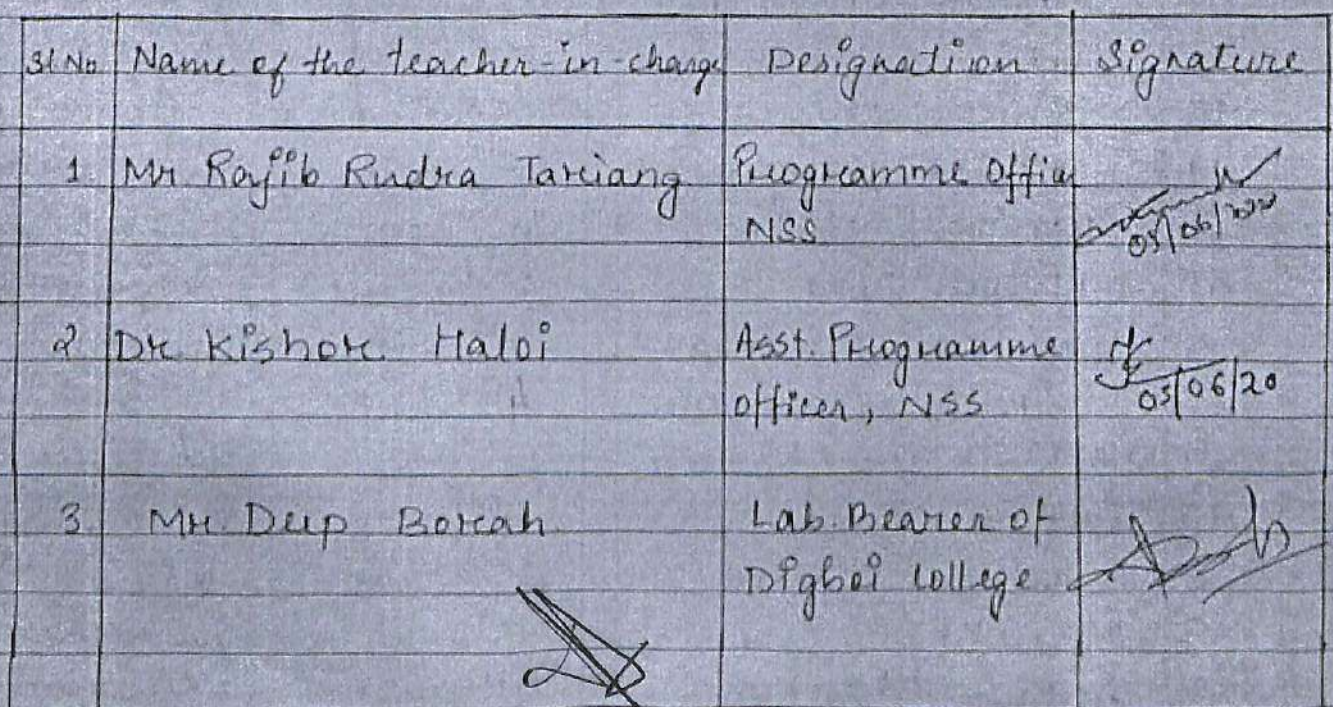 Sl No Name of the teacher-in-charge Designation Signature
1 Mr Rajib Rudra Tariang Programme Offic
NSS
05/06/2020
2 Dr Kishor Haloi Asst. Programme
officer, NSS
05/06/20
3 Mr Deep Borah Lab. Bearer of
Digboi College